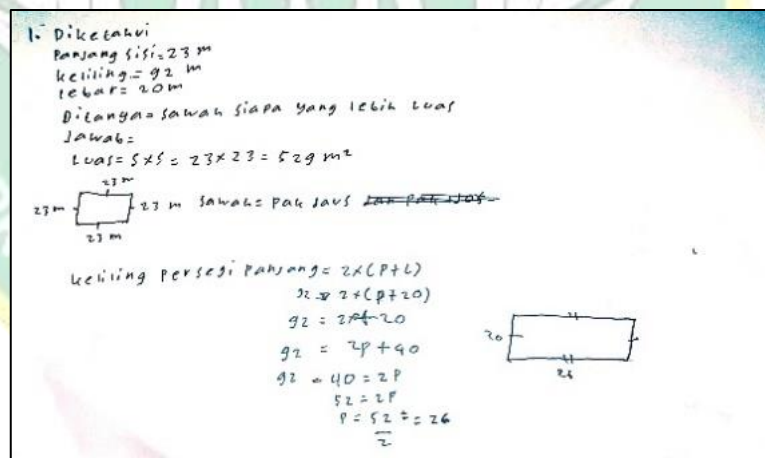 1. Diketahui
Panjang sisi = 23 m
keliling = 92 m
lebar = 20 m
Ditanya = sawah siapa yang lebih luas
Jawab =
Luas = s x s = 23 x 23 = 529 m²
23 m
23 m
23 m
sawah = Pak
23 m
keliling persegi panjang = 2x(P+L)
92 = 2x(p+20)
92 = 2p+20
92 = 2p + 40
92 - 40 = 2P
52 = 2P
P = 52 = 26
2
20
26